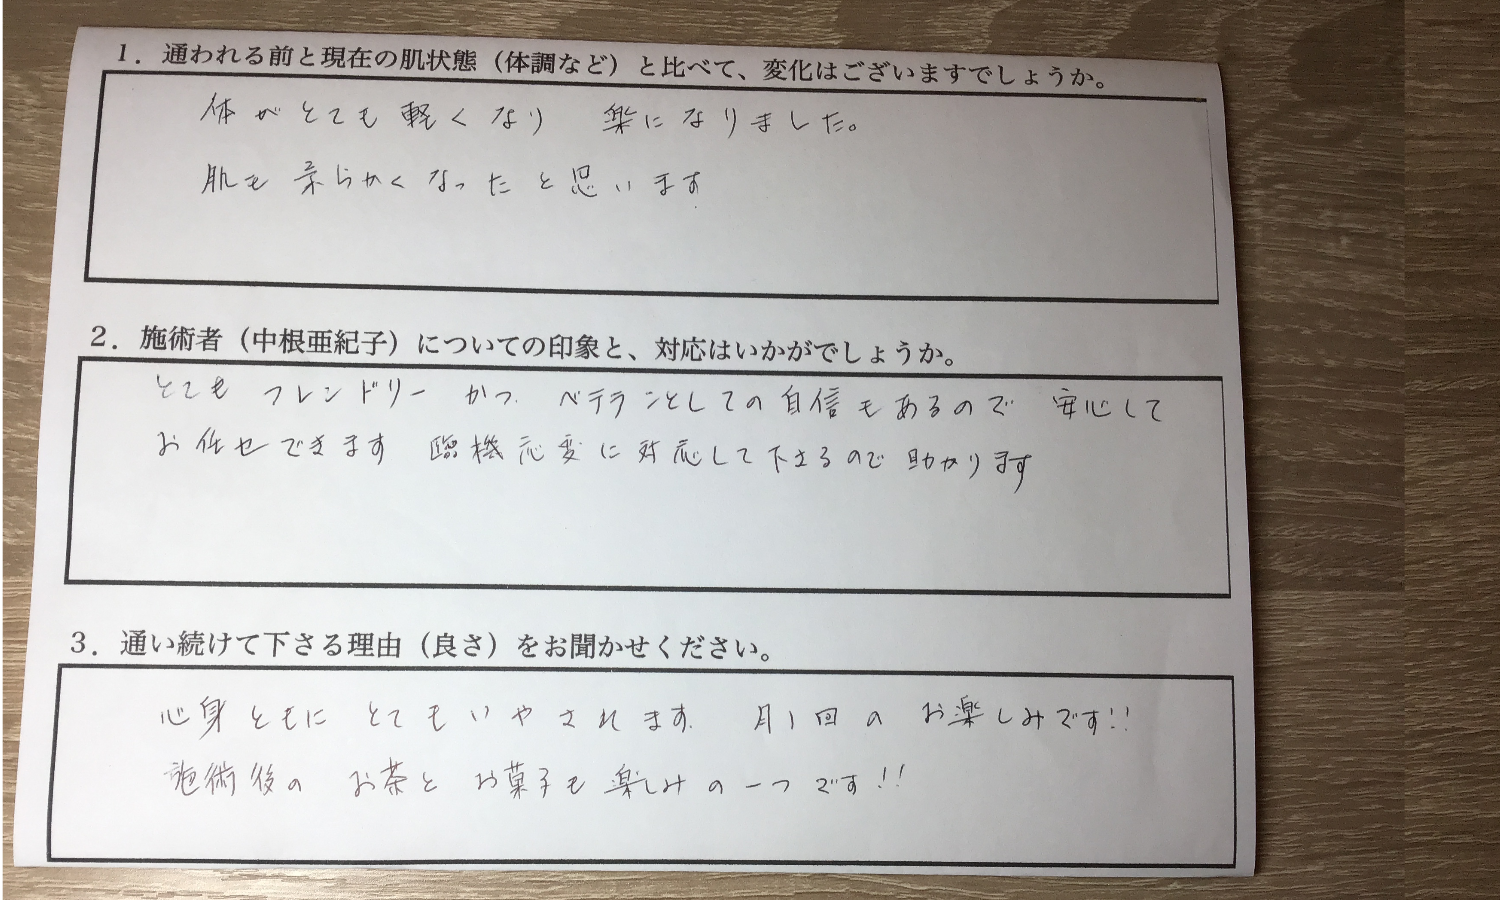 1．通われる前と現在の肌状態（体調など）と比べて、変化はございますでしょうか。
体がとても軽くなり 楽になりました。
肌も柔らかくなったと思います
2．施術者（中根亜紀子）についての印象と、対応はいかがでしょうか。
とてもフレンドリーかつ ベテランとしての自信もあるので 安心して
お任せできます 臨機応変に対応して下さるので助かります
3．通い続けて下さる理由（良さ）をお聞かせください。
心身ともに とてもいやされます 月1回の お楽しみです!!
施術後の お茶と お菓子も楽しみの一つです!!